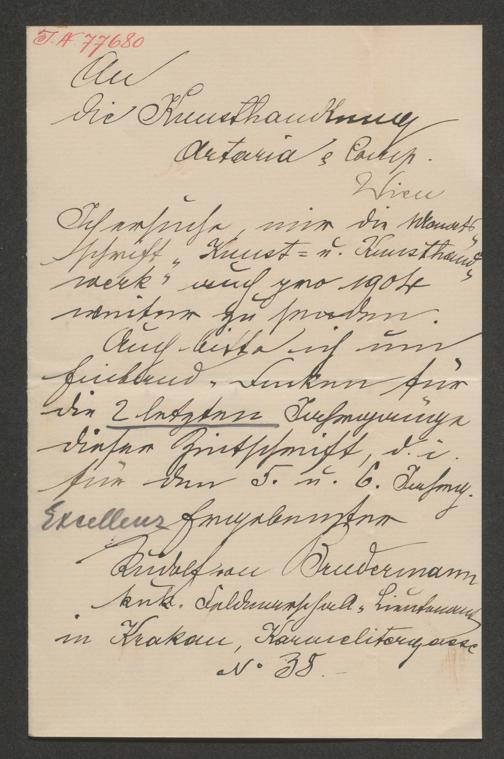 I. N. 77680
An
die Kunsthandlung
Artaria & Comp.
Wien
Ich ersuche, mir die Monats
schrift „Kunst= u. Kunsthand
werk“ auch pro 1904
weiter zu senden.
Auch bitte ich um
Einband-Decken für
die 2 letzten Jahrgänge
dieser Zeitschrift, d. i.
für den 5. u. 6. Jahrg.
Excellenz Ergebenster
Rudolf von Brudermann
kuk. Feldmarschall-Lieutenant
in Krakau, Karmelitergasse
No 38.